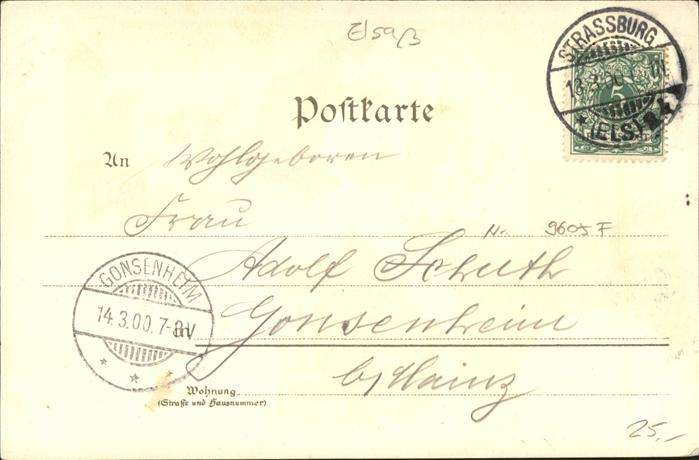 Els9/3
STRASSBURG
13.3.00
5
(ELS)
Postkarte
An Wohlgeboren
Frau
No 9605 F
Adolf Schuth
GONSENHEIM
14.3.00.7-8V
in Gonsenheim
b/Mainz
Wohnung
(Straße und Hausnummer)
25.-